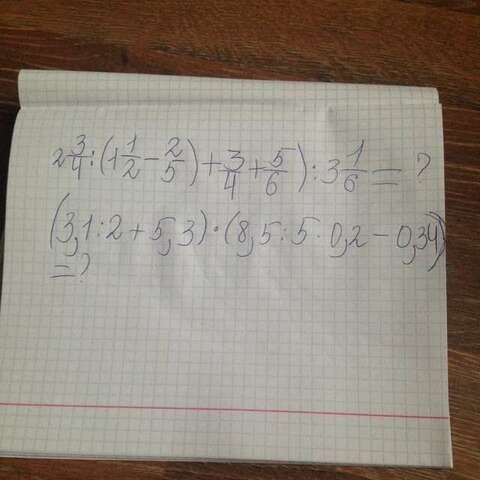 2 3/4 : (1 1/2 - 2/5) + 3/4 + 5/6) : 3 1/6 = ?
(3,1 : 2 + 5,3) · (8,5 : 5 · 0,2 - 0,34)
= ?